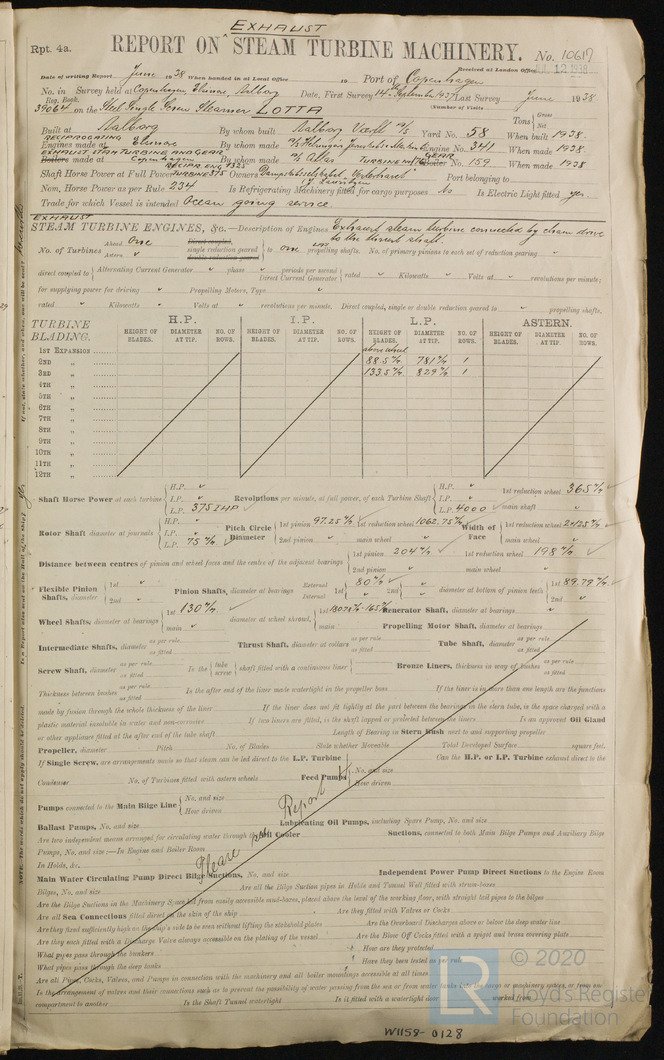 EXHAUST
Rpt. 4a.
REPORT ON ^ STEAM TURBINE MACHINERY.
No. 10617
Received at London Office JUL 12 1938
Date of writing Report June 1938 When handed in at Local Office 10 Port of Copenhagen
No. in Survey held at Copenhagen Elsinore Aalborg Date, First Survey 14th September 1937 Last Survey June 1938
Reg. Book. (Number of Visits
39064 on the Steel Single Screw Steamer LOTTA Tons { Gross Net
Built at Aalborg By whom built Aalborg Værft A/S Yard No. 58 When built 1938.
RECIPROCATING
Engines made at Elsinore By whom made Engine No. 341 When made 1938
EXHAUST STEAM TURBINE AND GEAR
Boilers made at Copenhagen By whom made A/S Atlas TURBINE GEAR Boiler No. 159 When made 1938
RECIPR. ENG. 1325
Shaft Horse Power at Full Power TURBINE 375 Owners Port belonging to
J. Lauritzen
Nom. Horse Power as per Rule 234 Is Refrigerating Machinery fitted for cargo purposes No Is Electric Light fitted yes.
Trade for which Vessel is intended Ocean going service
EXHAUST
STEAM TURBINE ENGINES, &c.—Description of Engines Exhaust steam turbine connected by chain drive
to the thrust shaft.
No. of Turbines Ahead One Astern Direct coupled, single reduction geared double reduction geared } to one propelling shafts. No. of primary pinions to each set of reduction gearing
direct coupled to { Alternating Current Generator phase periods per second Direct Current Generator } rated Kilowatts Volts at revolutions per minute;
for supplying power for driving Propelling Motors, Type
rated Kilowatts Volts at revolutions per minute. Direct coupled, single or double reduction geared to propelling shafts.
TURBINE BLADING. H.P. I.P. L.P. ASTERN.
HEIGHT OF BLADES. DIAMETER AT TIP. NO. OF ROWS. HEIGHT OF BLADES. DIAMETER AT TIP. NO. OF ROWS. HEIGHT OF BLADES. DIAMETER AT TIP. NO. OF ROWS. HEIGHT OF BLADES. DIAMETER AT TIP. NO. OF ROWS.
1ST EXPANSION
2ND „ 88.5 m/m 781 m/m 1
3RD „ 133.5 m/m 829 m/m 1
4TH „
5TH „
6TH „
7TH „
8TH „
9TH „
10TH „
11TH „
12TH „
Shaft Horse Power at each turbine { H.P. I.P. L.P. 375 IHP Revolutions per minute, at full power, of each Turbine Shaft { H.P. I.P. L.P. 4000 1st reduction wheel 365 main shaft
Rotor Shaft diameter at journals { H.P. I.P. L.P. 75 m/m Pitch Circle Diameter { 1st pinion 97.25 m/m 1st reduction wheel 1062.75 m/m 2nd pinion main wheel Width of Face { 1st reduction wheel main wheel
Distance between centres of pinion and wheel faces and the centre of the adjacent bearings { 1st pinion 204 m/m 2nd pinion 1st reduction wheel 198 m/m main wheel
Flexible Pinion Shafts, diameter { 1st 2nd Pinion Shafts, diameter at bearings External 1st 80 m/m Internal 1st 2nd diameter at bottom of pinion teeth { 1st 89.79 m/m 2nd
Wheel Shafts, diameter at bearings { 1st 130 m/m main diameter at wheel shroud, { 1st main Generator Shaft, diameter at bearings
Propelling Motor Shaft, diameter at bearings
Intermediate Shafts, diameter as per rule as fitted Thrust Shaft, diameter at collars as per rule as fitted Tube Shaft, diameter as per rule as fitted
Screw Shaft, diameter as per rule as fitted Is the { tube screw } shaft fitted with a continuous liner { Bronze Liners, thickness in way of bushes as per rule as fitted
Thickness between bushes as per rule as fitted Is the after end of the liner made watertight in the propeller boss If the liner is in more than one length are the junctions
made by fusion through the whole thickness of the liner If the liner does not fit tightly at the part between the bearings in the stern tube, is the space charged with a
plastic material insoluble in water and non-corrosive If two liners are fitted, is the shaft lapped or protected between the liners Is an approved Oil Gland
or other appliance fitted at the after end of the tube shaft Length of Bearing in Stern Bush next to and supporting propeller
Propeller, diameter Pitch No. of Blades State whether Moveable Total Developed Surface square feet.
If Single Screw, are arrangements made so that steam can be led direct to the L.P. Turbine Can the H.P. or I.P. Turbine exhaust direct to the
Condenser No. of Turbines fitted with astern wheels Feed Pumps { No. and size How driven
Pumps connected to the Main Bilge Line { No. and size How driven
Ballast Pumps, No. and size Lubricating Oil Pumps, including Spare Pump, No. and size
Are two independent means arranged for circulating water through the Oil Cooler Suctions, connected to both Main Bilge Pumps and Auxiliary Bilge
Pumps, No. and size:—In Engine and Boiler Room
In Holds, &c.
Please see Report
Main Water Circulating Pump Direct Bilge Suctions, No. and size Independent Power Pump Direct Suctions to the Engine Room
Bilges, No. and size Are all the Bilge Suction pipes in Holds and Tunnel Well fitted with strum-boxes
Are the Bilge Suctions in the Machinery Space led from easily accessible mud-boxes, placed above the level of the working floor, with straight tail pipes to the bilges
Are all Sea Connections fitted direct on the skin of the ship Are they fitted with Valves or Cocks
Are they fixed sufficiently high on the ship's side to be seen without lifting the stokehold plates Are the Overboard Discharges above or below the deep water line
Are they each fitted with a Discharge Valve always accessible on the plating of the vessel Are the Blow Off Cocks fitted with a spigot and brass covering plate
What pipes pass through the bunkers How are they protected
What pipes pass through the deep tanks Have they been tested as per rule
Are all Pipes, Cocks, Valves, and Pumps in connection with the machinery and all boiler mountings accessible at all times
Is the arrangement of valves and their connections such as to prevent the possibility of water passing from the sea or from water tanks into the cargo or machinery spaces, or from one
compartment to another Is the Shaft Tunnel watertight Is it fitted with a watertight door worked from
W1158-0128
LR © 2020
Lloyd's Register
Foundation